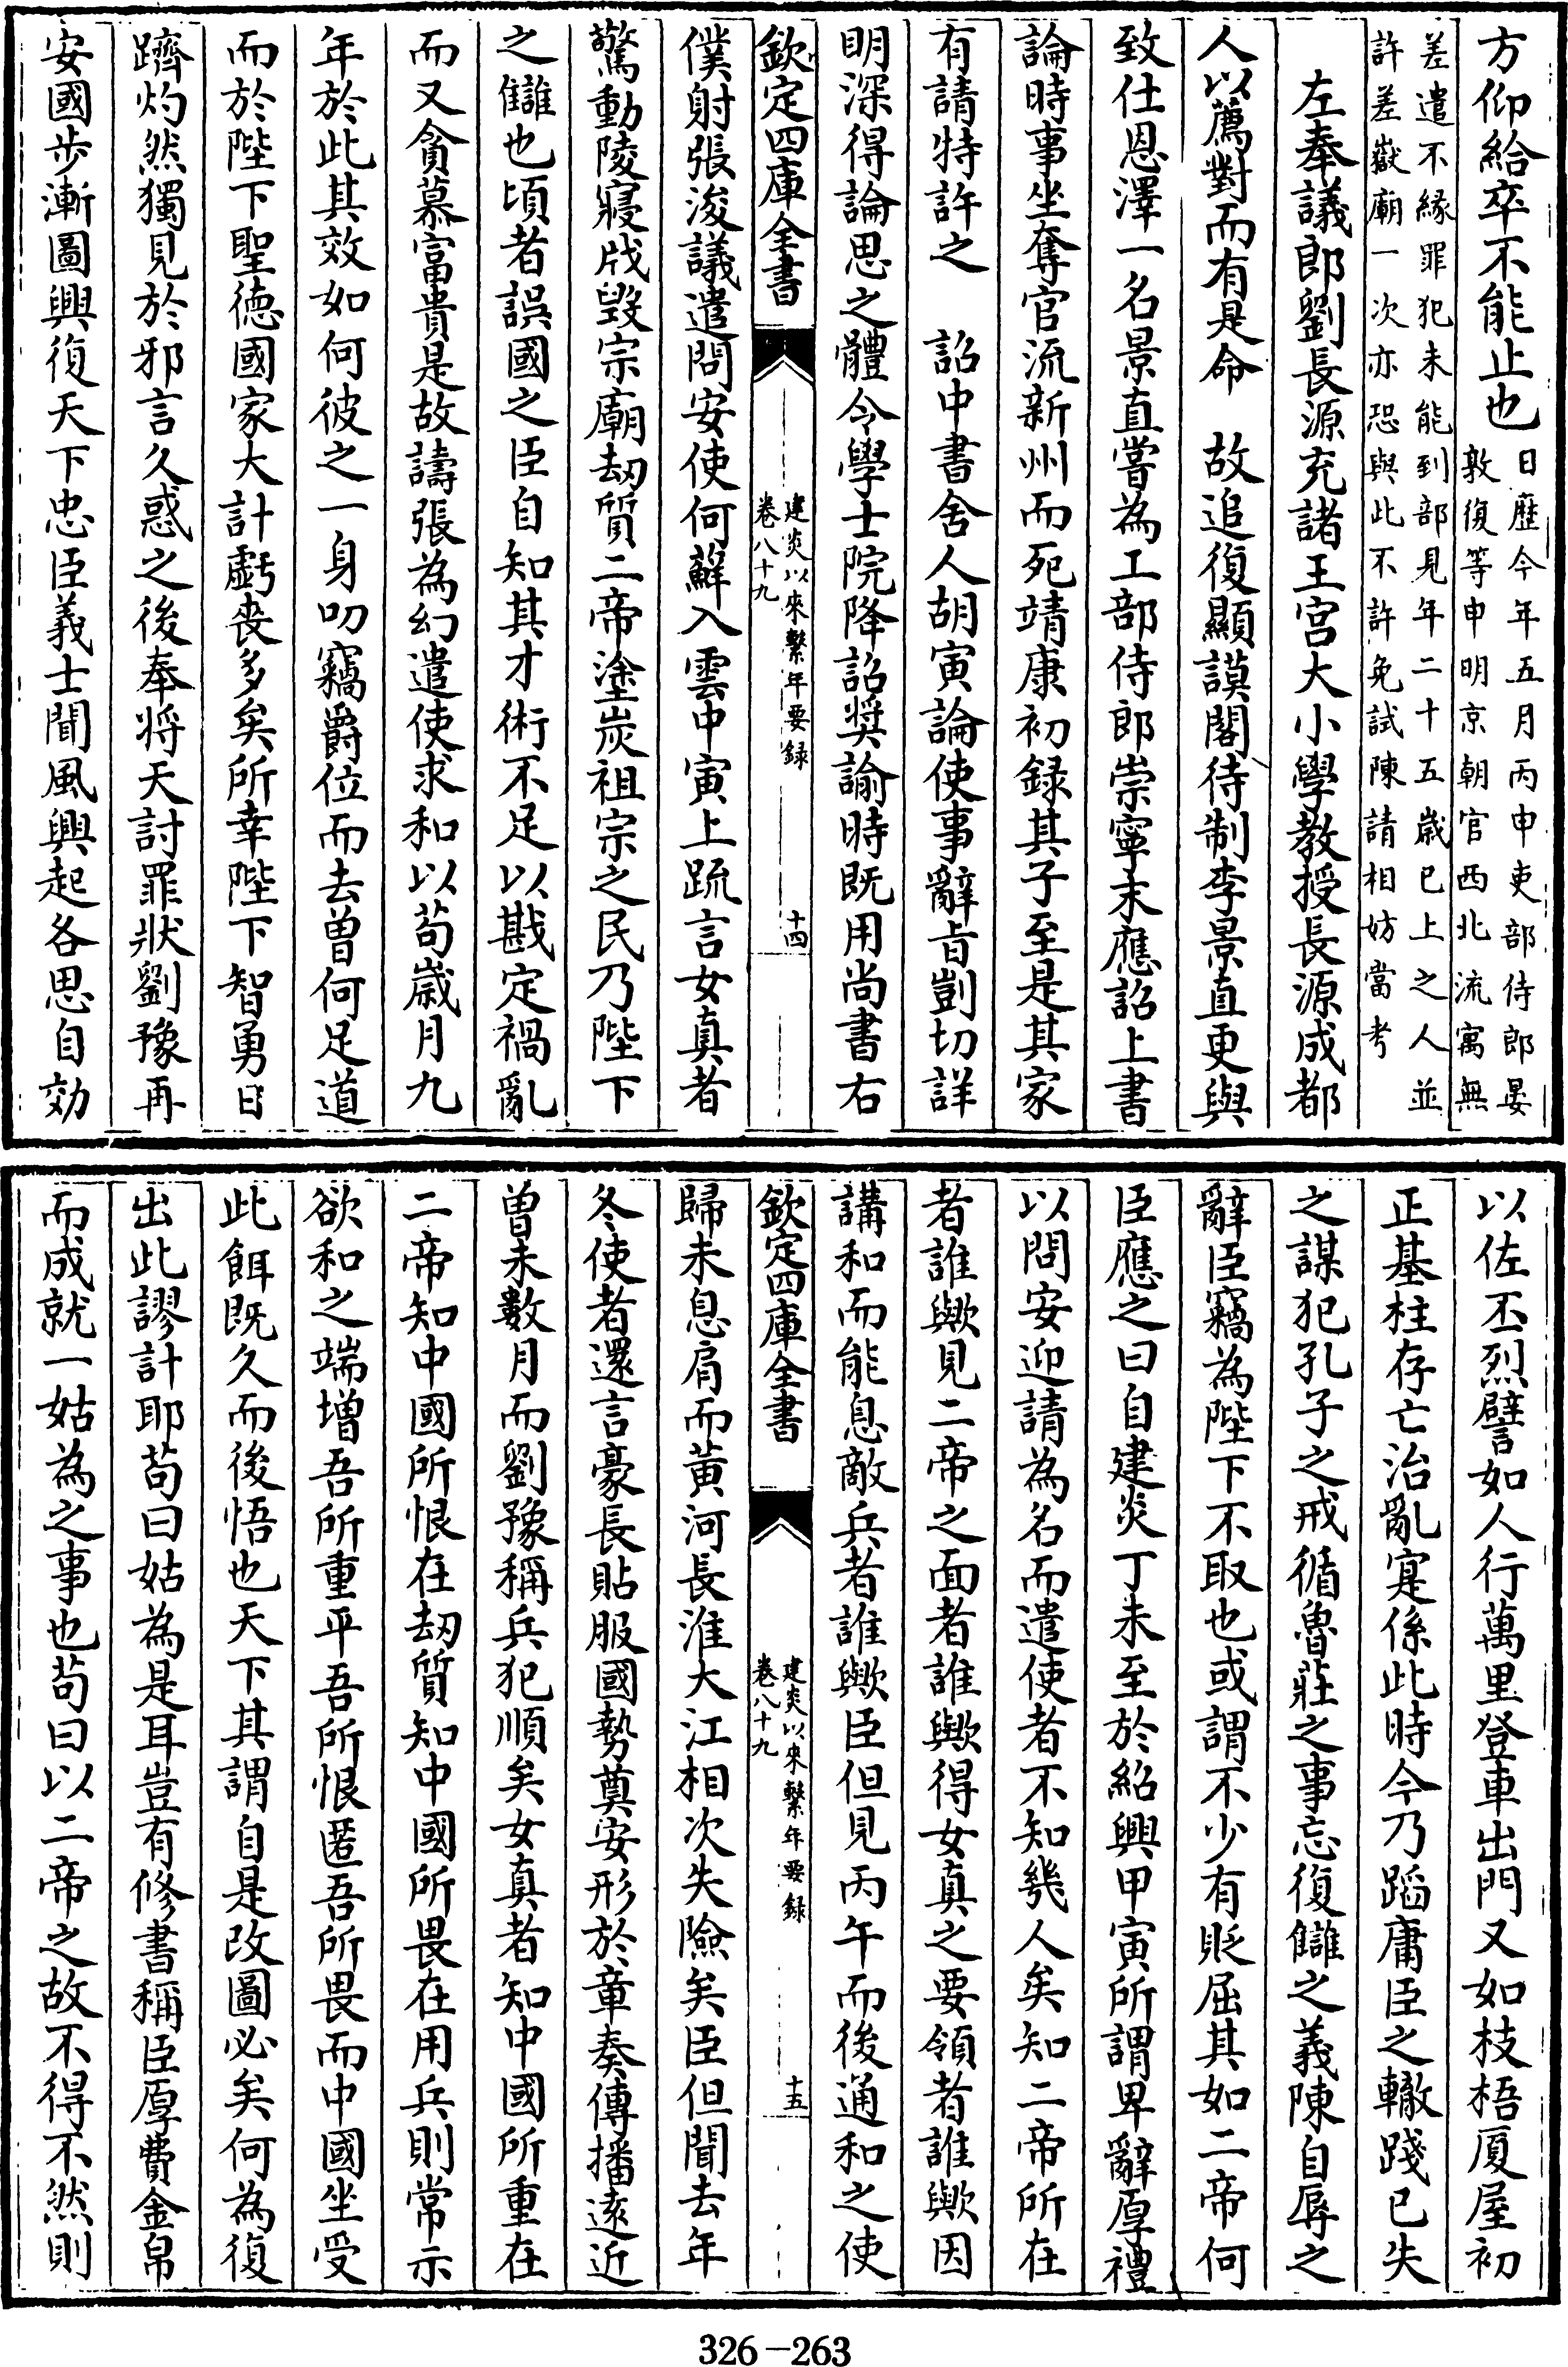 方仰給卒不能止也日歴今年五月丙申吏部侍郎晏
敦復等申明京朝官西北流寓無
差遣不緣罪犯未能到部見年二十五歳已上之人並
許差嶽廟一次亦恐與此不許免試陳請相妨當考
左奉議郎劉長源充諸王宮大小學教授長源成都
人以薦對而有是命　故追復顯謨閣待制李景直更與
致仕恩澤一名景直嘗為工部侍郎崇寧末應詔上書
論時事坐奪官流新州而死靖康初録其子至是其家
有請特許之　詔中書舍人胡寅論使事辭㫖剴切詳
明深得論思之體令學士院降詔奬諭時既用尚書右
欽定四庫全書
建炎以來繫年要録
卷八十九
十四
僕射張浚議遣問安使何蘚入雲中寅上疏言女真者
驚動陵寢戕毀宗廟刼質二帝塗炭祖宗之民乃陛下
之讎也頃者誤國之臣自知其才術不足以戡定禍亂
而又貪慕富貴是故譸張為幻遣使求和以茍歳月九
年於此其效如何彼之一身叨竊爵位而去曽何足道
而於陛下聖德國家大計虧喪多矣所幸陛下智勇日
躋灼然獨見於邪言久惑之後奉将天討罪狀劉豫再
安國步漸圖興復天下忠臣義士聞風興起各思自効
以佐丕烈譬如人行萬里登車出門又如枝梧厦屋初
正基柱存亡治亂寔係此時今乃蹈庸臣之轍踐已失
之謀犯孔子之戒循魯莊之事忘復讎之義陳自辱之
辭臣竊為陛下不取也或謂不少有貶屈其如二帝何
臣應之曰自建炎丁未至於紹興甲寅所謂卑辭厚禮
以問安迎請為名而遣使者不知幾人矣知二帝所在
者誰歟見二帝之面者誰歟得女真之要領者誰歟因
講和而能息敵兵者誰歟臣但見丙午而後通和之使
欽定四庫全書
建炎以來繫年要録
卷八十九
十五
歸未息肩而黃河長淮大江相次失險矣臣但聞去年
冬使者還言豪長貼服國勢奠安形於章奏傳播遠近
曽未數月而劉豫稱兵犯順矣女真者知中國所重在
二帝知中國所恨在刼質知中國所畏在用兵則常示
欲和之端増吾所重平吾所恨匿吾所畏而中國坐受
此餌既久而後悟也天下其謂自是改圖必矣何為復
出此謬計耶茍曰姑為是耳豈有修書稱臣厚費金帛
而成就一姑為之事也茍曰以二帝之故不得不然則
326－263